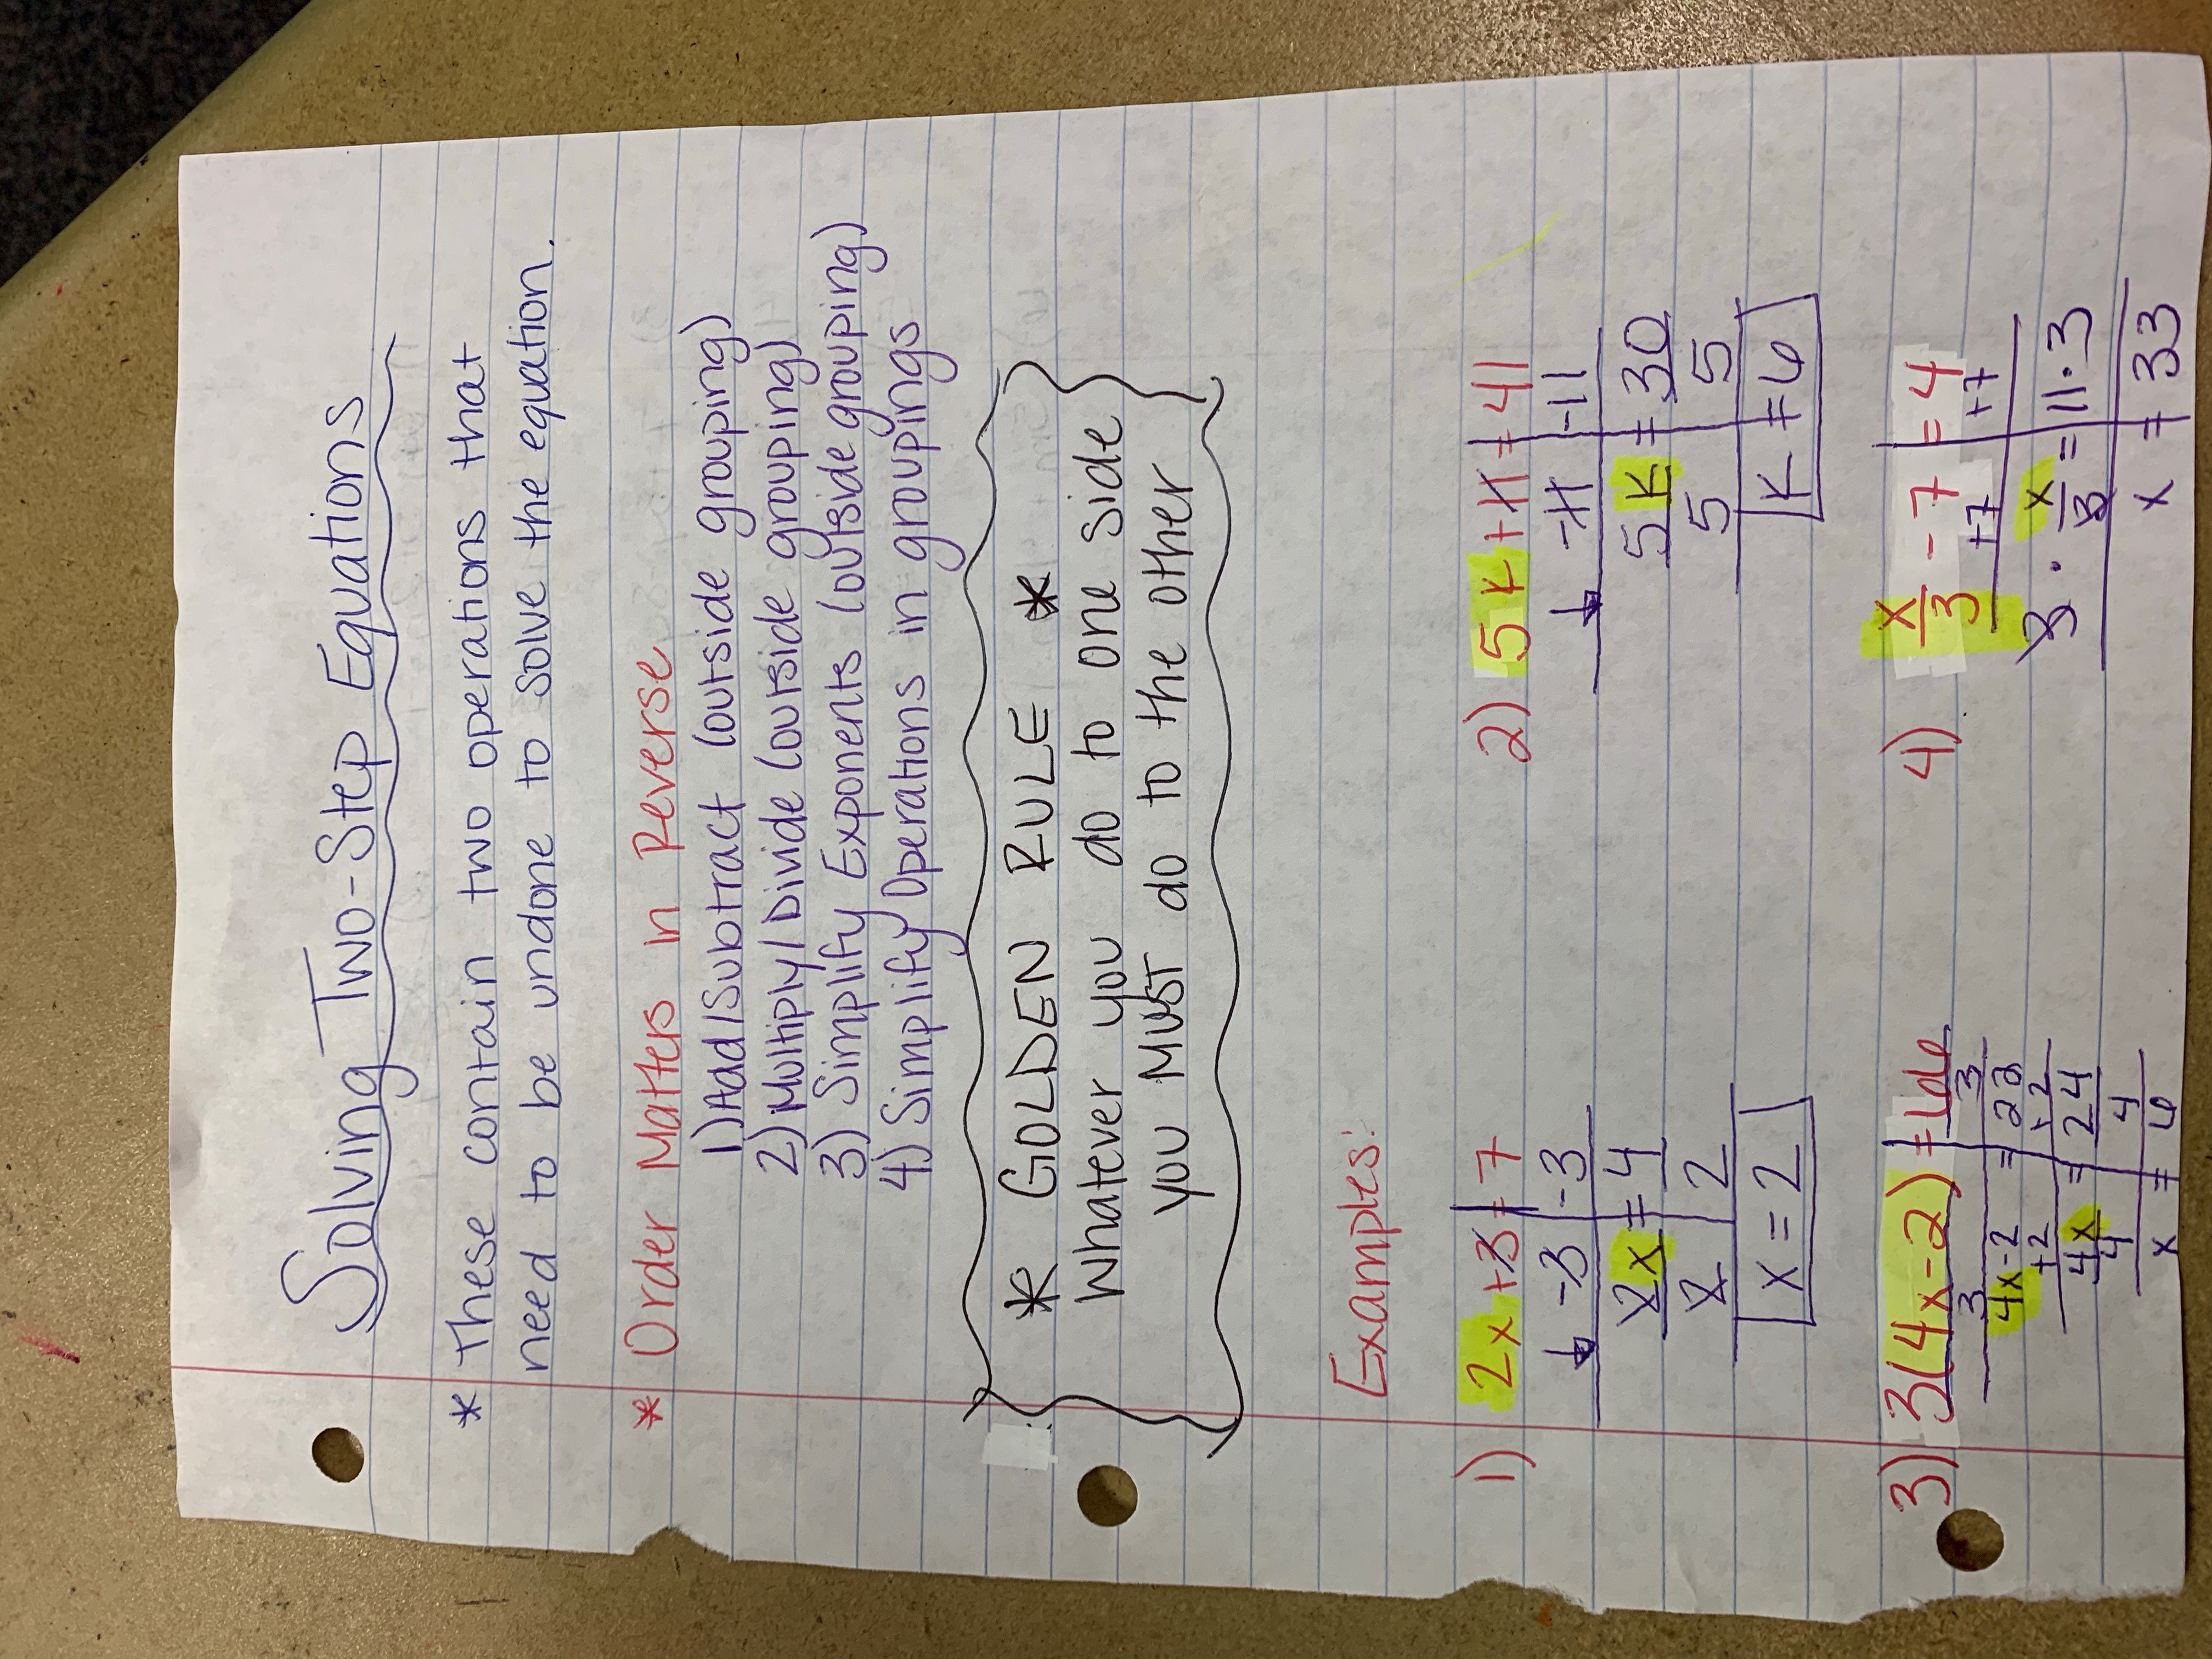 Solving Two-Step Equations
* These contain two operations that
need to be undone to solve the equation.
* Order Matters in Reverse
1) Add/Subtract (outside grouping)
2) Multiply/Divide (outside grouping)
3) Simplify Exponents (outside grouping)
4) Simplify Operations in groupings
* GOLDEN RULE *
Whatever you do to one side
you MUST do to the other
Examples:
1) 2x+3=7
-3 -3
2x=4
2 2
x=2
2) 5k+11=41
-11 -11
5k=30
5 5
k=6
3) 3(4x-2)=66
3 3
4x-2=22
+2 +2
4x=24
4 4
x=6
4) x/3-7=4
+7 +7
3·x/3=11·3
x=33